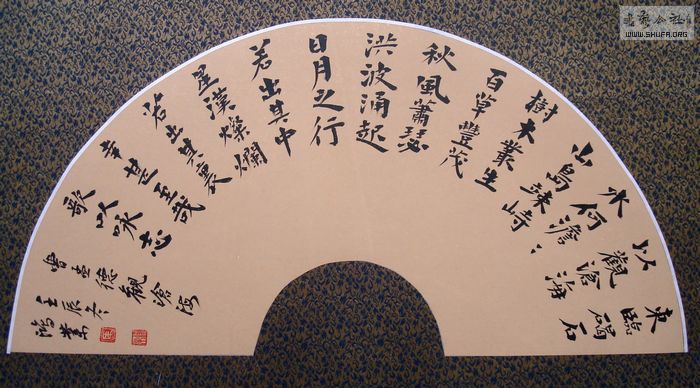 東臨碣石
以觀滄海
水何澹〻
山島竦峙
樹木叢生
百草豐茂
秋風蕭瑟
洪波涌起
日月之行
若出其中
星漢燦爛
若出其裏
幸甚至哉
歌以咏志
曹孟德觀滄海
壬辰冬
鴻
WWW.SHUFA.ORG